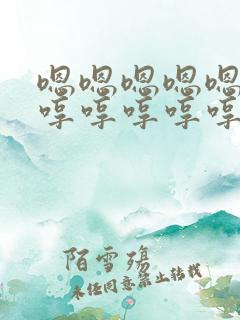 嗯嗯嗯嗯嗯
哼哼哼哼哼
陌雪殇
未经同意禁止转载